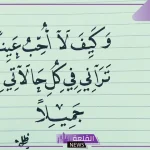 وَكَيْفَ لَا أُحِبُّ عَيْنًا
تَرَانِي فِي كُلِّ حَالَاتِي
جَمِيلًا
القلعة
NEWS